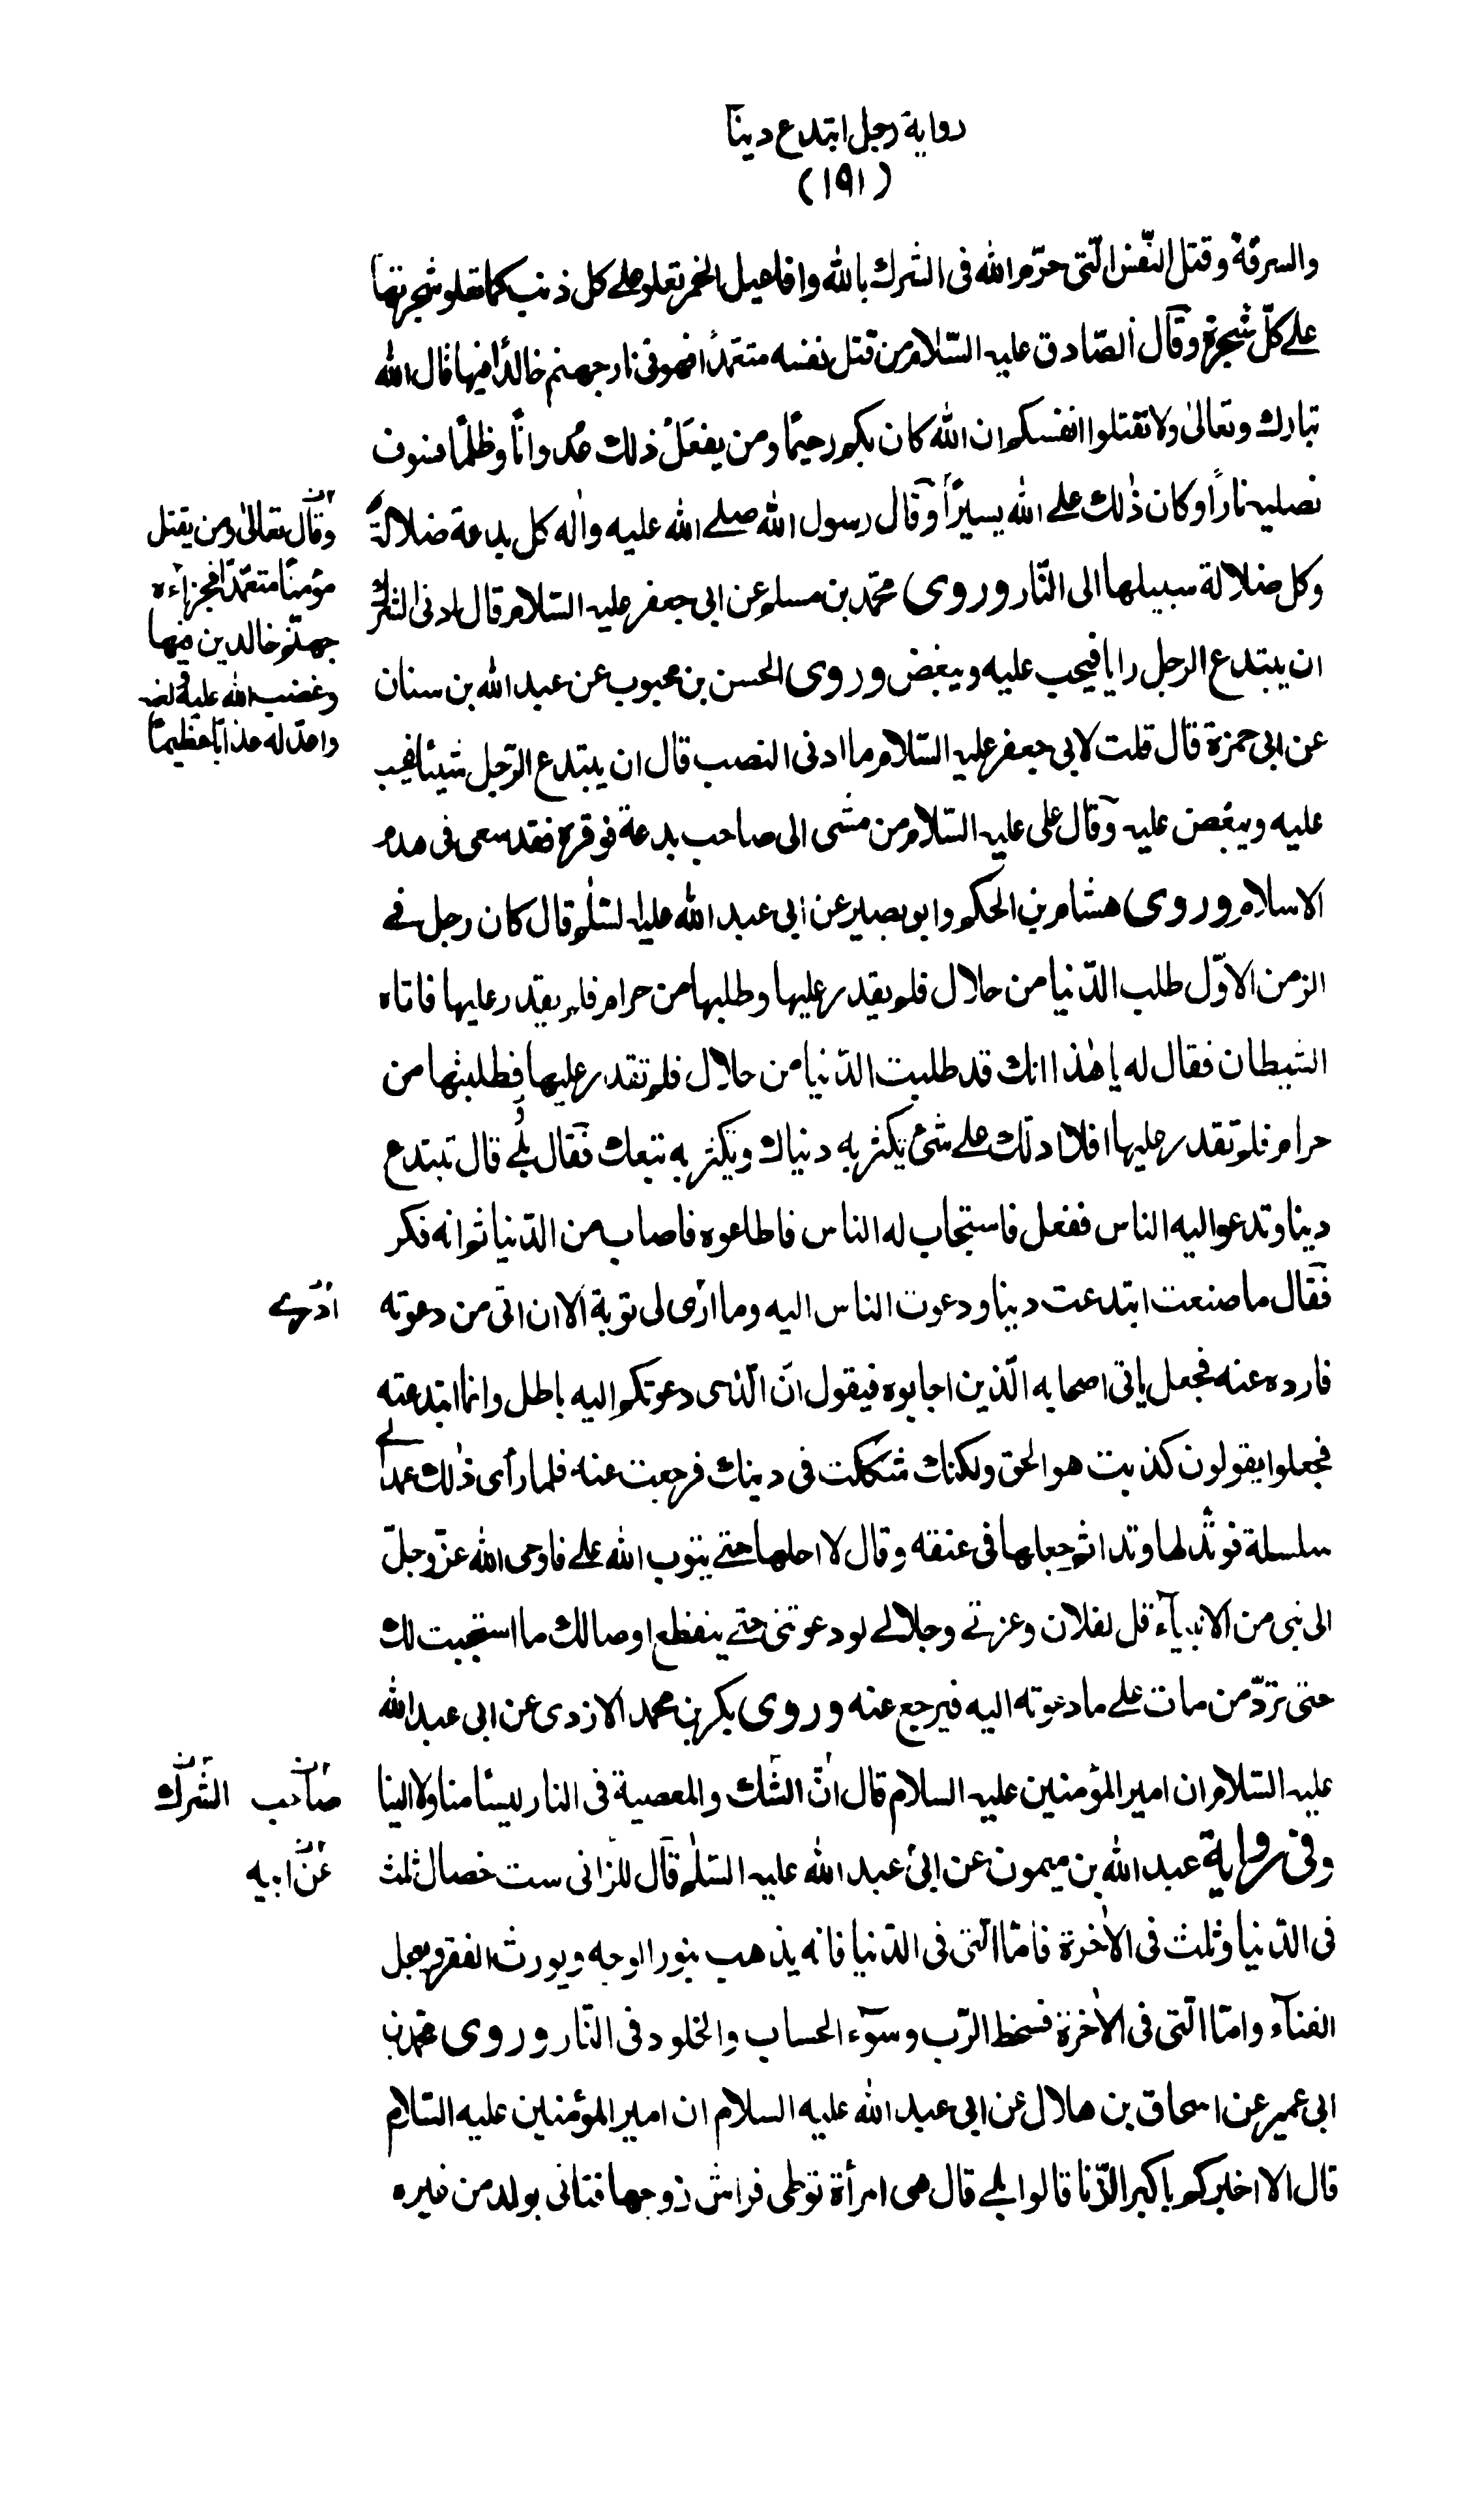 رواية رجل ابتدع دينا
(١٩١)
والسرقة وقتل النّفس الّتى حرّم الله فى الشرك بالله وافاعيل الخمر تعلو على كل ذنب كما تعلو شجرتها
على كلّ شجرة وقال الصّادق عليه السّلام من قتل نفسه متعمّداً فهو فى نار جهنم خالدًا فيها قال الله
تبارك وتعالىٰ ولا تقتلوا انفسكم ان الله كان بكم رحيمًا ومن يفعَلْ ذلك عُدوانًا وظلمًا فسوف
نصليه نارًا وكان ذٰلك على الله يسيرًا وقال رسول الله صلى الله عليه واٰله كل بدعة ضلالة
وكل ضلالة سبيلها الى النّار وروى محمّد بن مسلم عن ابى جعفر عليه السّلام قال ادنى الشرك
ان يبتدع الرجل رايا فيحب عليه ويبغض وروى الحسن بن محبوب عن عبد الله بن سنان
عن ابى حمزة قال قلت لابى جعفر عليه السّلام ما ادنى النصب قال ان يبتدع الرّجل شيئا فيحب
عليه ويبغض عليه وقال على عليه السّلام من مشى الى صاحب بدعة فوقره فقد سعى فى هدم
الاسلام وروى هشام بن الحكم وابو بصير عن ابى عبد الله عليه السّلٰم قال كان رجل فى
الزمن الاوّل طلب الدّنيا من حلال فلم يقدر عليها وطلبها من حرام فلم يقدر عليها فاتاه
الشيطان فقال له يا هٰذا انك قد طلبت الدّنيا من حلال فلم تقدر عليها فطلبتها من
حرام فلم تقدر عليها افلا ادلّك على شئ يكثر به دنياك ويكثر به تبعك فقال بلى قال تبتدع
دينا وتدعو اليه الناس ففعل فاستجاب له الناس فاطاعوه فاصاب من الدّنيا ثم انه فكر
فقال ما صنعت ابتدعت دينا ودعوت الناس اليه وما ارٰى لى توبة الا ان اتى من دعوته
فارده عنه فجعل ياتى اصحابه الّذين اجابوه فيقول انّ الّذى دعوتكم اليه باطل وانما ابتدعته
فجعلوا يقولون كذبت هو الحق ولكنك شككت فى دينك فرجعت عنه فلما رأى ذٰلك عمد الى
سلسلة فوتّد لها وتدا ثم جعلها فى عنقه وقال لا احلها حتى يتوب الله على فاوحى الله عزّ وجلّ
الى نبى من الانبيآء قل لفلان وعزتى وجلالى لو دعوتنى حتى ينقطع اوصالك ما استجبت لك
حتى تردّ من مات على ما دعوته اليه فيرجع عنه وروى بكر بن محمد الازدى عن ابى عبد الله
عليه السّلام ان امير المؤمنين عليه السلام قال انّ الشك والمعصية فى النار ليسا منا ولا الينا
وفى رواية عبد الله بن ميمون عن ابى عبد الله عليه السّلٰم قال للزانى ست خصال ثلث
فى الدّنيا وثلث فى الاٰخرة فامّا الّتى فى الدّنيا فانه يذهب بنور الوجه ويورث الفقر ويعجل
الفنآء وامّا الّتى فى الاٰخرة فسخط الرّب وسوٓء الحساب والخلود فى النّار وروى محمّد بن
ابى عمير عن اسحاق بن هلال عن ابى عبد الله عليه السلام ان امير المؤمنين عليه السّلام
قال الا اخبركم باكبر الزّنا قالوا بلى قال هى امرأة توطى فراش زوجها فتاتى بولد من غيره
وقال تعالىٰ ومن يقتل
مؤمنًا متعمّدًا فجزاءه
جهنّم خالدين فيها
وغضب الله عليه ولعنه
واعدّ له عذابًا عظيمًا
ادرى
صاحب الشرك
عن ابيه